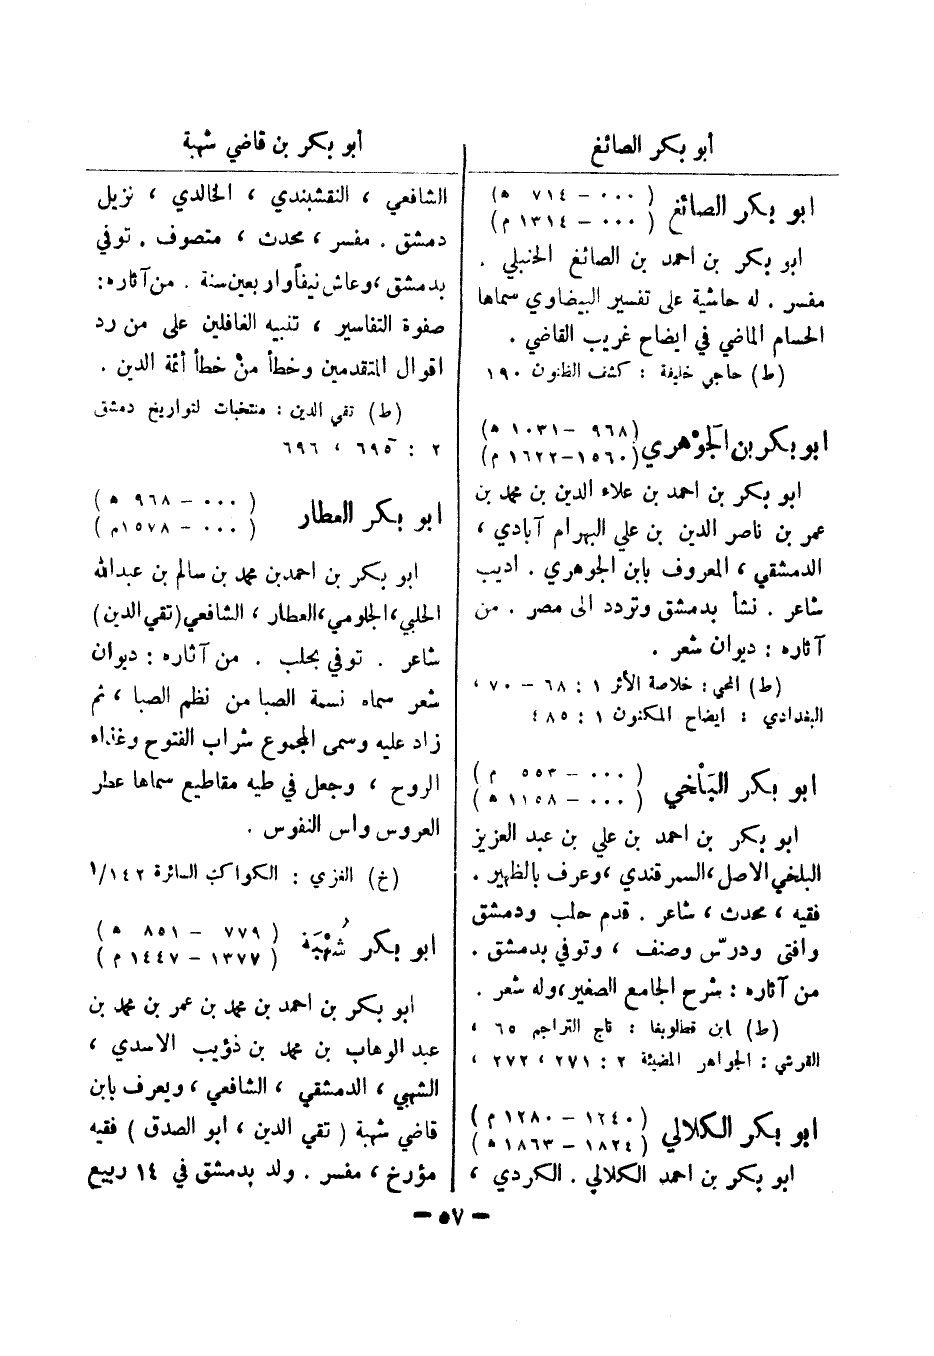 أبو بكر الصائغ
ابو بكر الصائغ
( ٠٠٠ - ٧١٤ ه )
( ٠٠٠ - ١٣١٤ م )
ابو بكر بن احمد بن الصائغ الحنبلي .
مفسر . له حاشية على تفسير البيضاوي سماها
الحسام الماضي في ايضاح غريب القاضي .
(ط) حاجي خليفة : كشف الظنون ١٩٠
ابو بكر بن الجَوْهري
( ٩٦٨ - ١٠٣١ ه )
( ١٥٦٠ - ١٦٢٢ م )
ابو بكر بن احمد بن علاء الدين بن محمد بن
عمر بن ناصر الدين بن علي البهرام آبادي ،
الدمشقي ، المعروف بابن الجوهري . اديب
شاعر . نشأ بدمشق وتردد الى مصر . من
آثاره : ديوان شعر .
(ط) المحبي : خلاصة الأثر ١ : ٦٨ - ٧٠ ،
البغدادي : ايضاح المكنون ١ : ٤٨٥
ابو بكر البَلْخي
( ٠٠٠ - ٥٥٣ م )
( ٠٠٠ - ١١٥٨ ه )
ابو بكر بن احمد بن علي بن عبد العزيز
البلخي الاصل ، السمرقندي ، وعرف بالظهير .
فقيه ، محدث ، شاعر . قدم حلب ودمشق
وافتى ودرّس وصنف ، وتوفي بدمشق .
من آثاره : شرح الجامع الصغير ، وله شعر .
(ط) ابن قطلوبغا : تاج التراجم ٦٥ ،
القرشي : الجواهر المضيئة ٢ : ٢٧١ ، ٢٧٢ ،
ابو بكر الكلالي
( ١٢٤٠ - ١٢٨٠ م )
( ١٨٢٤ - ١٨٦٣ ه )
ابو بكر بن احمد الكلالي . الكردي ،
أبو بكر بن قاضي شهبة
الشافعي ، النقشبندي ، الخالدي ، نزيل
دمشق . مفسر ، محدث ، متصوف . توفي
بدمشق ، وعاش نيفاً واربعين سنة . من آثاره :
صفوة التفاسير ، تنبيه الغافلين على من رد
اقوال المتقدمين وخطأ منْ خطأ أئمة الدين .
(ط) تقي الدين : منتخبات لتواريخ دمشق
٢ : ٦٩٥ ، ٦٩٦
ابو بكر العطار
( ٠٠٠ - ٩٦٨ ه )
( ٠٠٠ - ١٥٧٨ م )
ابو بكر بن احمد بن محمد بن سالم بن عبدالله
الحلبي ، الجلومي ، العطار ، الشافعي (تقي الدين)
شاعر . توفي بحلب . من آثاره : ديوان
شعر سماه نسمة الصبا من نظم الصبا ، ثم
زاد عليه وسمى المجموع شراب الفتوح وغذاء
الروح ، وجعل في طيه مقاطيع سماها عطر
العروس واس النفوس .
(خ) الغزي : الكواكب السائرة ١/١٤٢
ابو بكر شُهْبَة
( ٧٧٩ - ٨٥١ ه )
( ١٣٧٧ - ١٤٤٧ م )
ابو بكر بن احمد بن محمد بن عمر بن محمد بن
عبد الوهاب بن محمد بن ذؤيب الاسدي ،
الشهبي ، الدمشقي ، الشافعي ، ويعرف بابن
قاضي شهبة ( تقي الدين ، ابو الصدق ) فقيه
مؤرخ ، مفسر . ولد بدمشق في ١٤ ربيع
- ٥٧ -